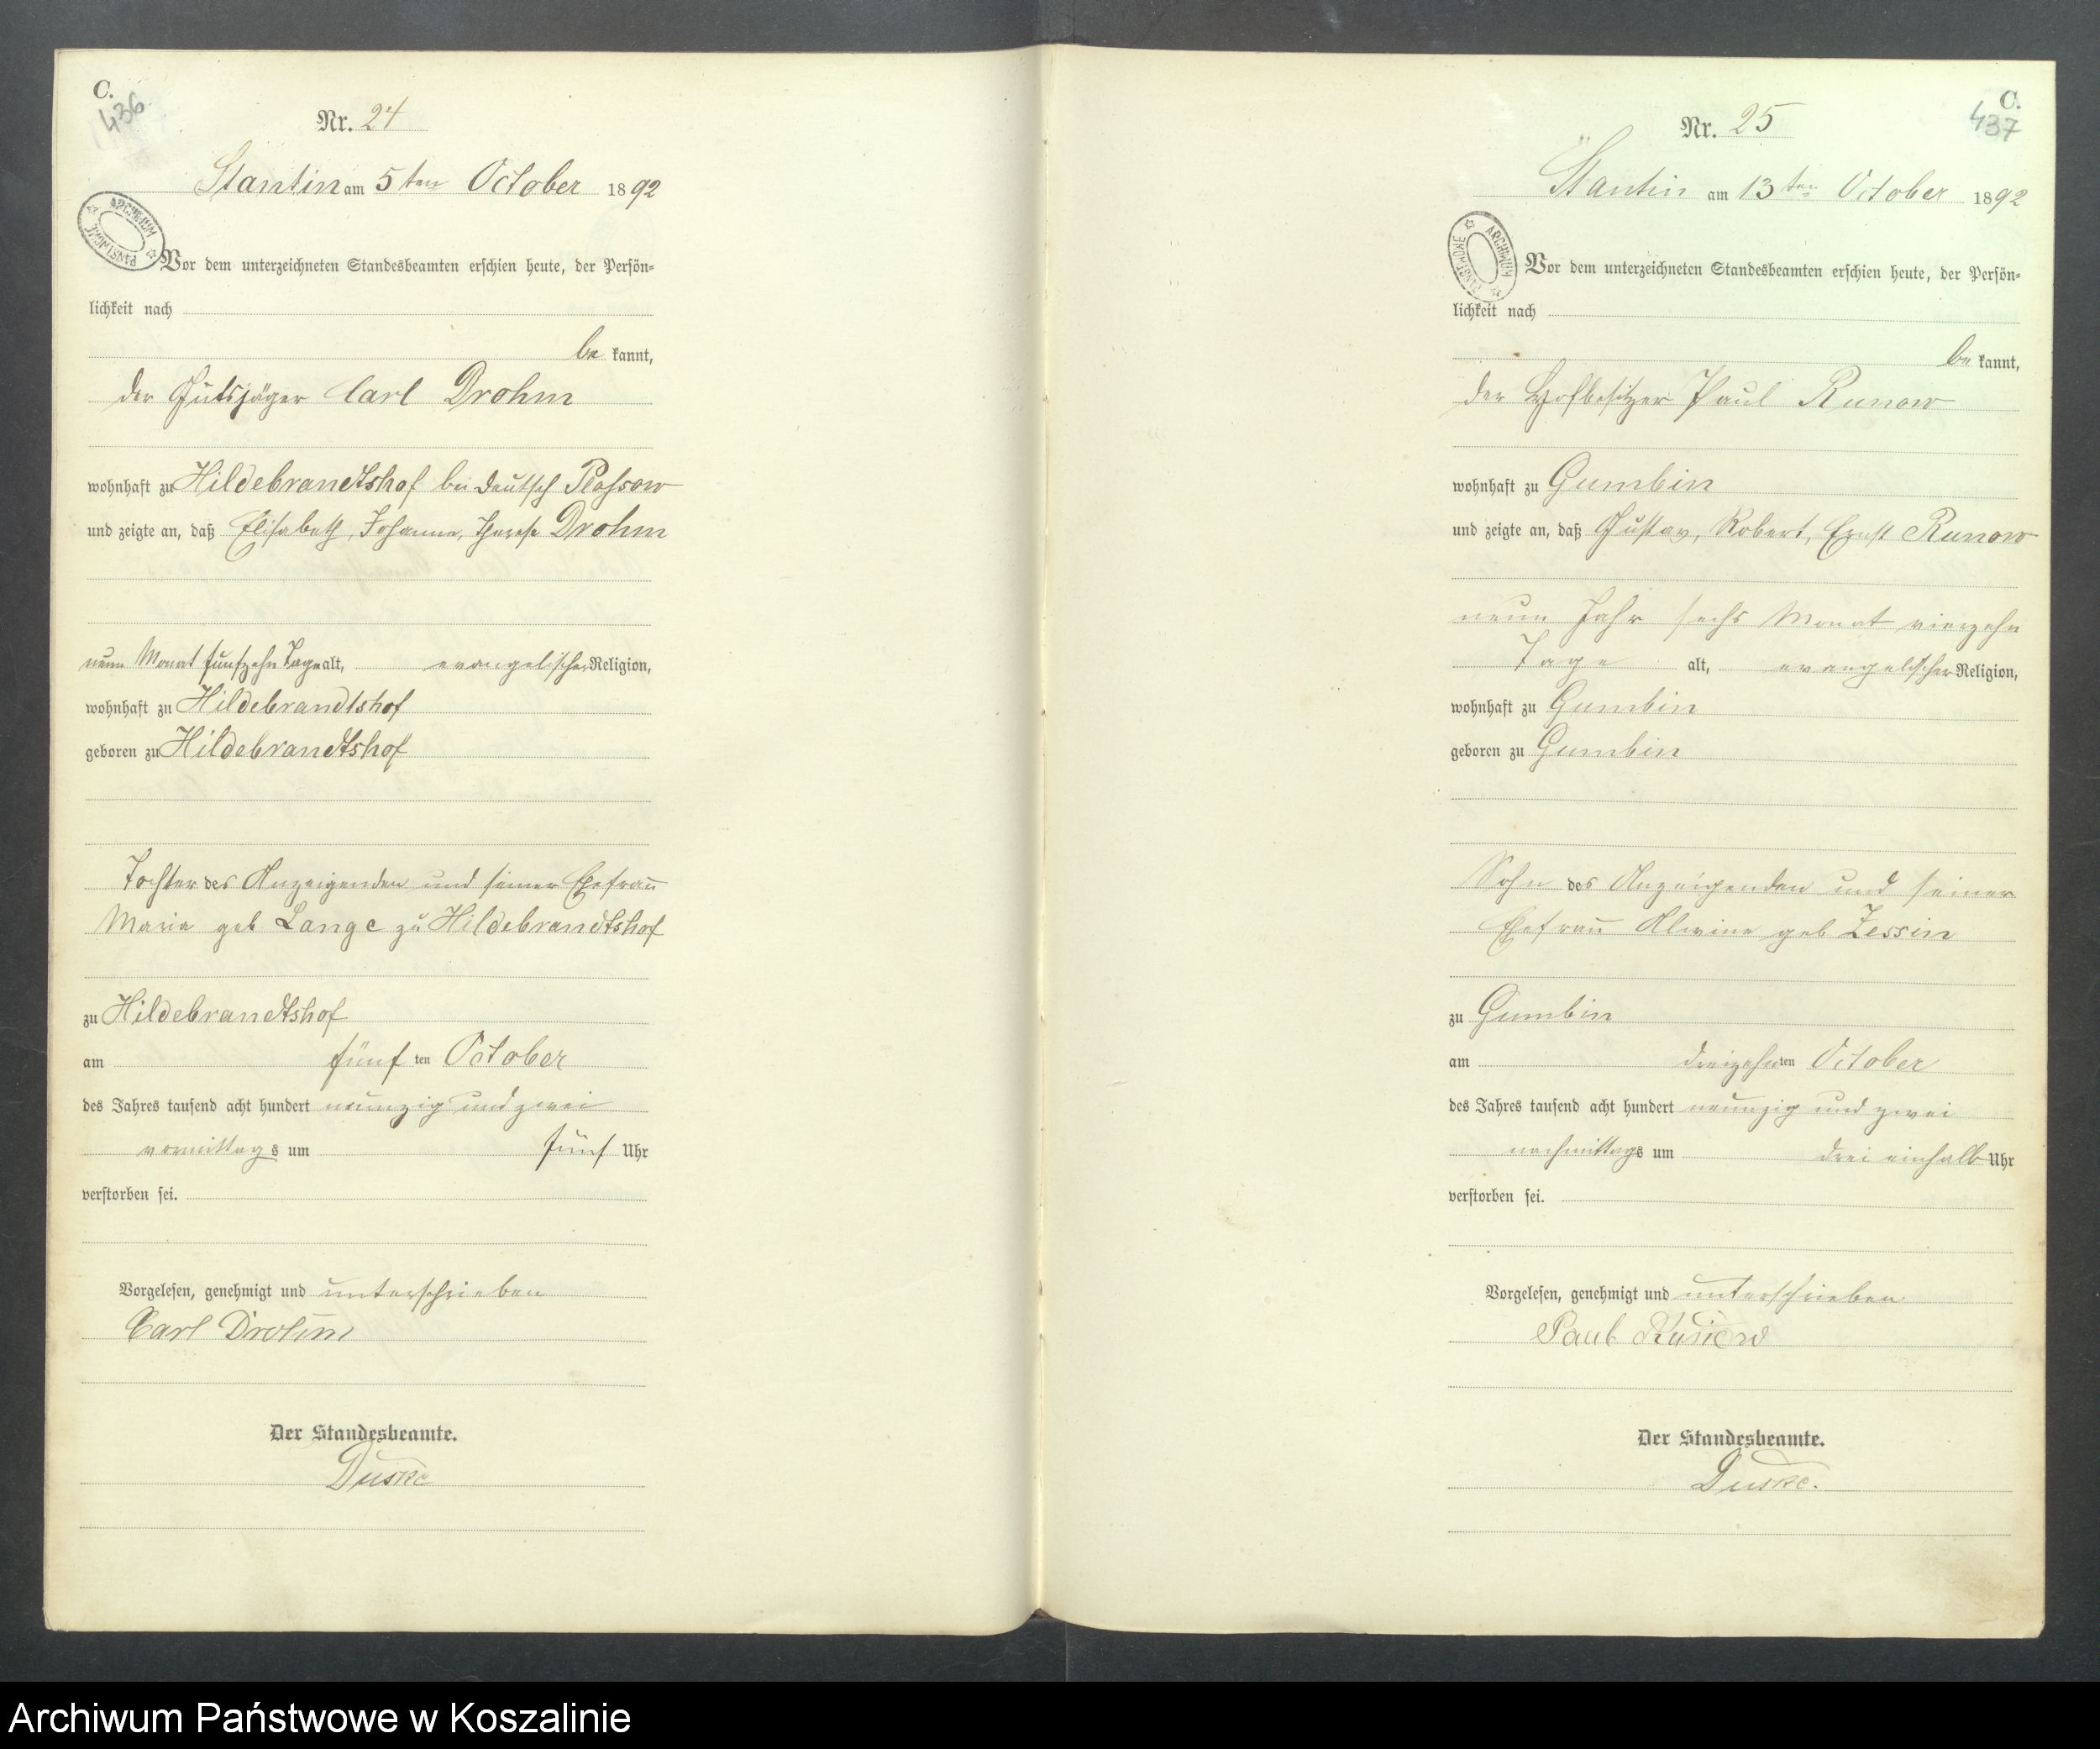 C.
436
Nr. 24
Stantin am 5ten October 1892
ARCHIWUM PAŃSTWOWE
Vor dem unterzeichneten Standesbeamten erschien heute, der Persön-
lichkeit nach
be kannt,
der Gutsjäger Carl Drohm
wohnhaft zu Hildebrandtshof bei Deutsch Plassow
und zeigte an, daß Elisabeth, Johanna, Therese Drohm
neun Monat fünfzehn Tage alt, evangelischer Religion,
wohnhaft zu Hildebrandtshof
geboren zu Hildebrandtshof
Tochter des Anzeigenden und seiner Ehefrau
Maria geb Lange zu Hildebrandtshof
zu Hildebrandtshof
am fünf ten October
des Jahres tausend acht hundert neunzig und zwei
vormittags um fünf Uhr
verstorben sei.
Vorgelesen, genehmigt und unterschrieben
Carl Drohm
Der Standesbeamte.
Duske
C.
437
Nr. 25
Stantin am 13ten October 1892
ARCHIWUM PAŃSTWOWE
Vor dem unterzeichneten Standesbeamten erschien heute, der Persön-
lichkeit nach
be kannt,
der Hofbesitzer Paul Runow
wohnhaft zu Gumbin
und zeigte an, daß Gustav, Robert, Ernst Runow
neun Jahr sechs Monat vierzehn
Tage alt, evangelischer Religion,
wohnhaft zu Gumbin
geboren zu Gumbin
Sohn des Anzeigenden und seiner
Ehefrau Alwine geb Zessin
zu Gumbin
am dreizehn ten October
des Jahres tausend acht hundert neunzig und zwei
nachmittags um drei einhalb Uhr
verstorben sei.
Vorgelesen, genehmigt und unterschrieben
Paul Runow
Der Standesbeamte.
Duske.
Archiwum Państwowe w Koszalinie